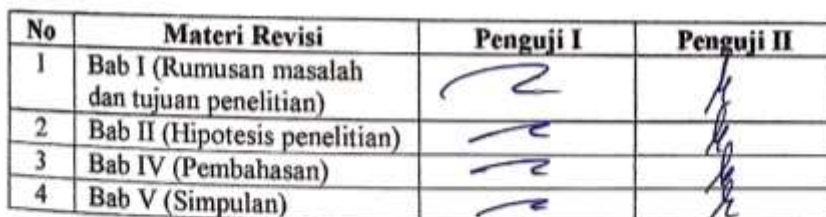 No Materi Revisi Penguji I Penguji II
1 Bab I (Rumusan masalah
dan tujuan penelitian)
2 Bab II (Hipotesis penelitian)
3 Bab IV (Pembahasan)
4 Bab V (Simpulan)